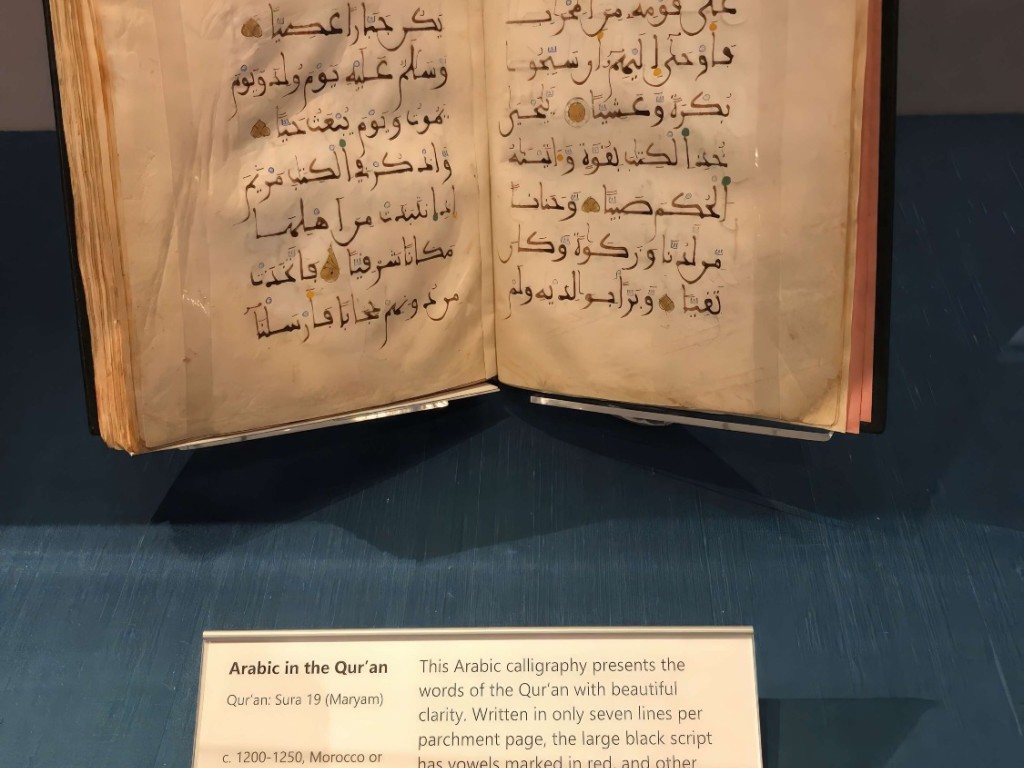 على قومه من المحراب
فأوحى إليهم أن سبحوا
بكرة وعشيا ييحيى
خذ الكتب بقوة وءاتينه
الحكم صبيا وحنانا
من لدنا وزكوة وكان
تقيا وبرا بوالديه ولم
يكن جبارا عصيا
وسلم عليه يوم ولد ويوم
يموت ويوم يبعث حيا
واذكر في الكتب مريم
إذ انتبذت من أهلها
مكانا شرقيا فاتخذت
من دونهم حجابا فأرسلنا
Arabic in the Qur'an
Qur'an: Sura 19 (Maryam)
c. 1200-1250, Morocco or
This Arabic calligraphy presents the
words of the Qur'an with beautiful
clarity. Written in only seven lines per
parchment page, the large black script
has vowels marked in red, and other